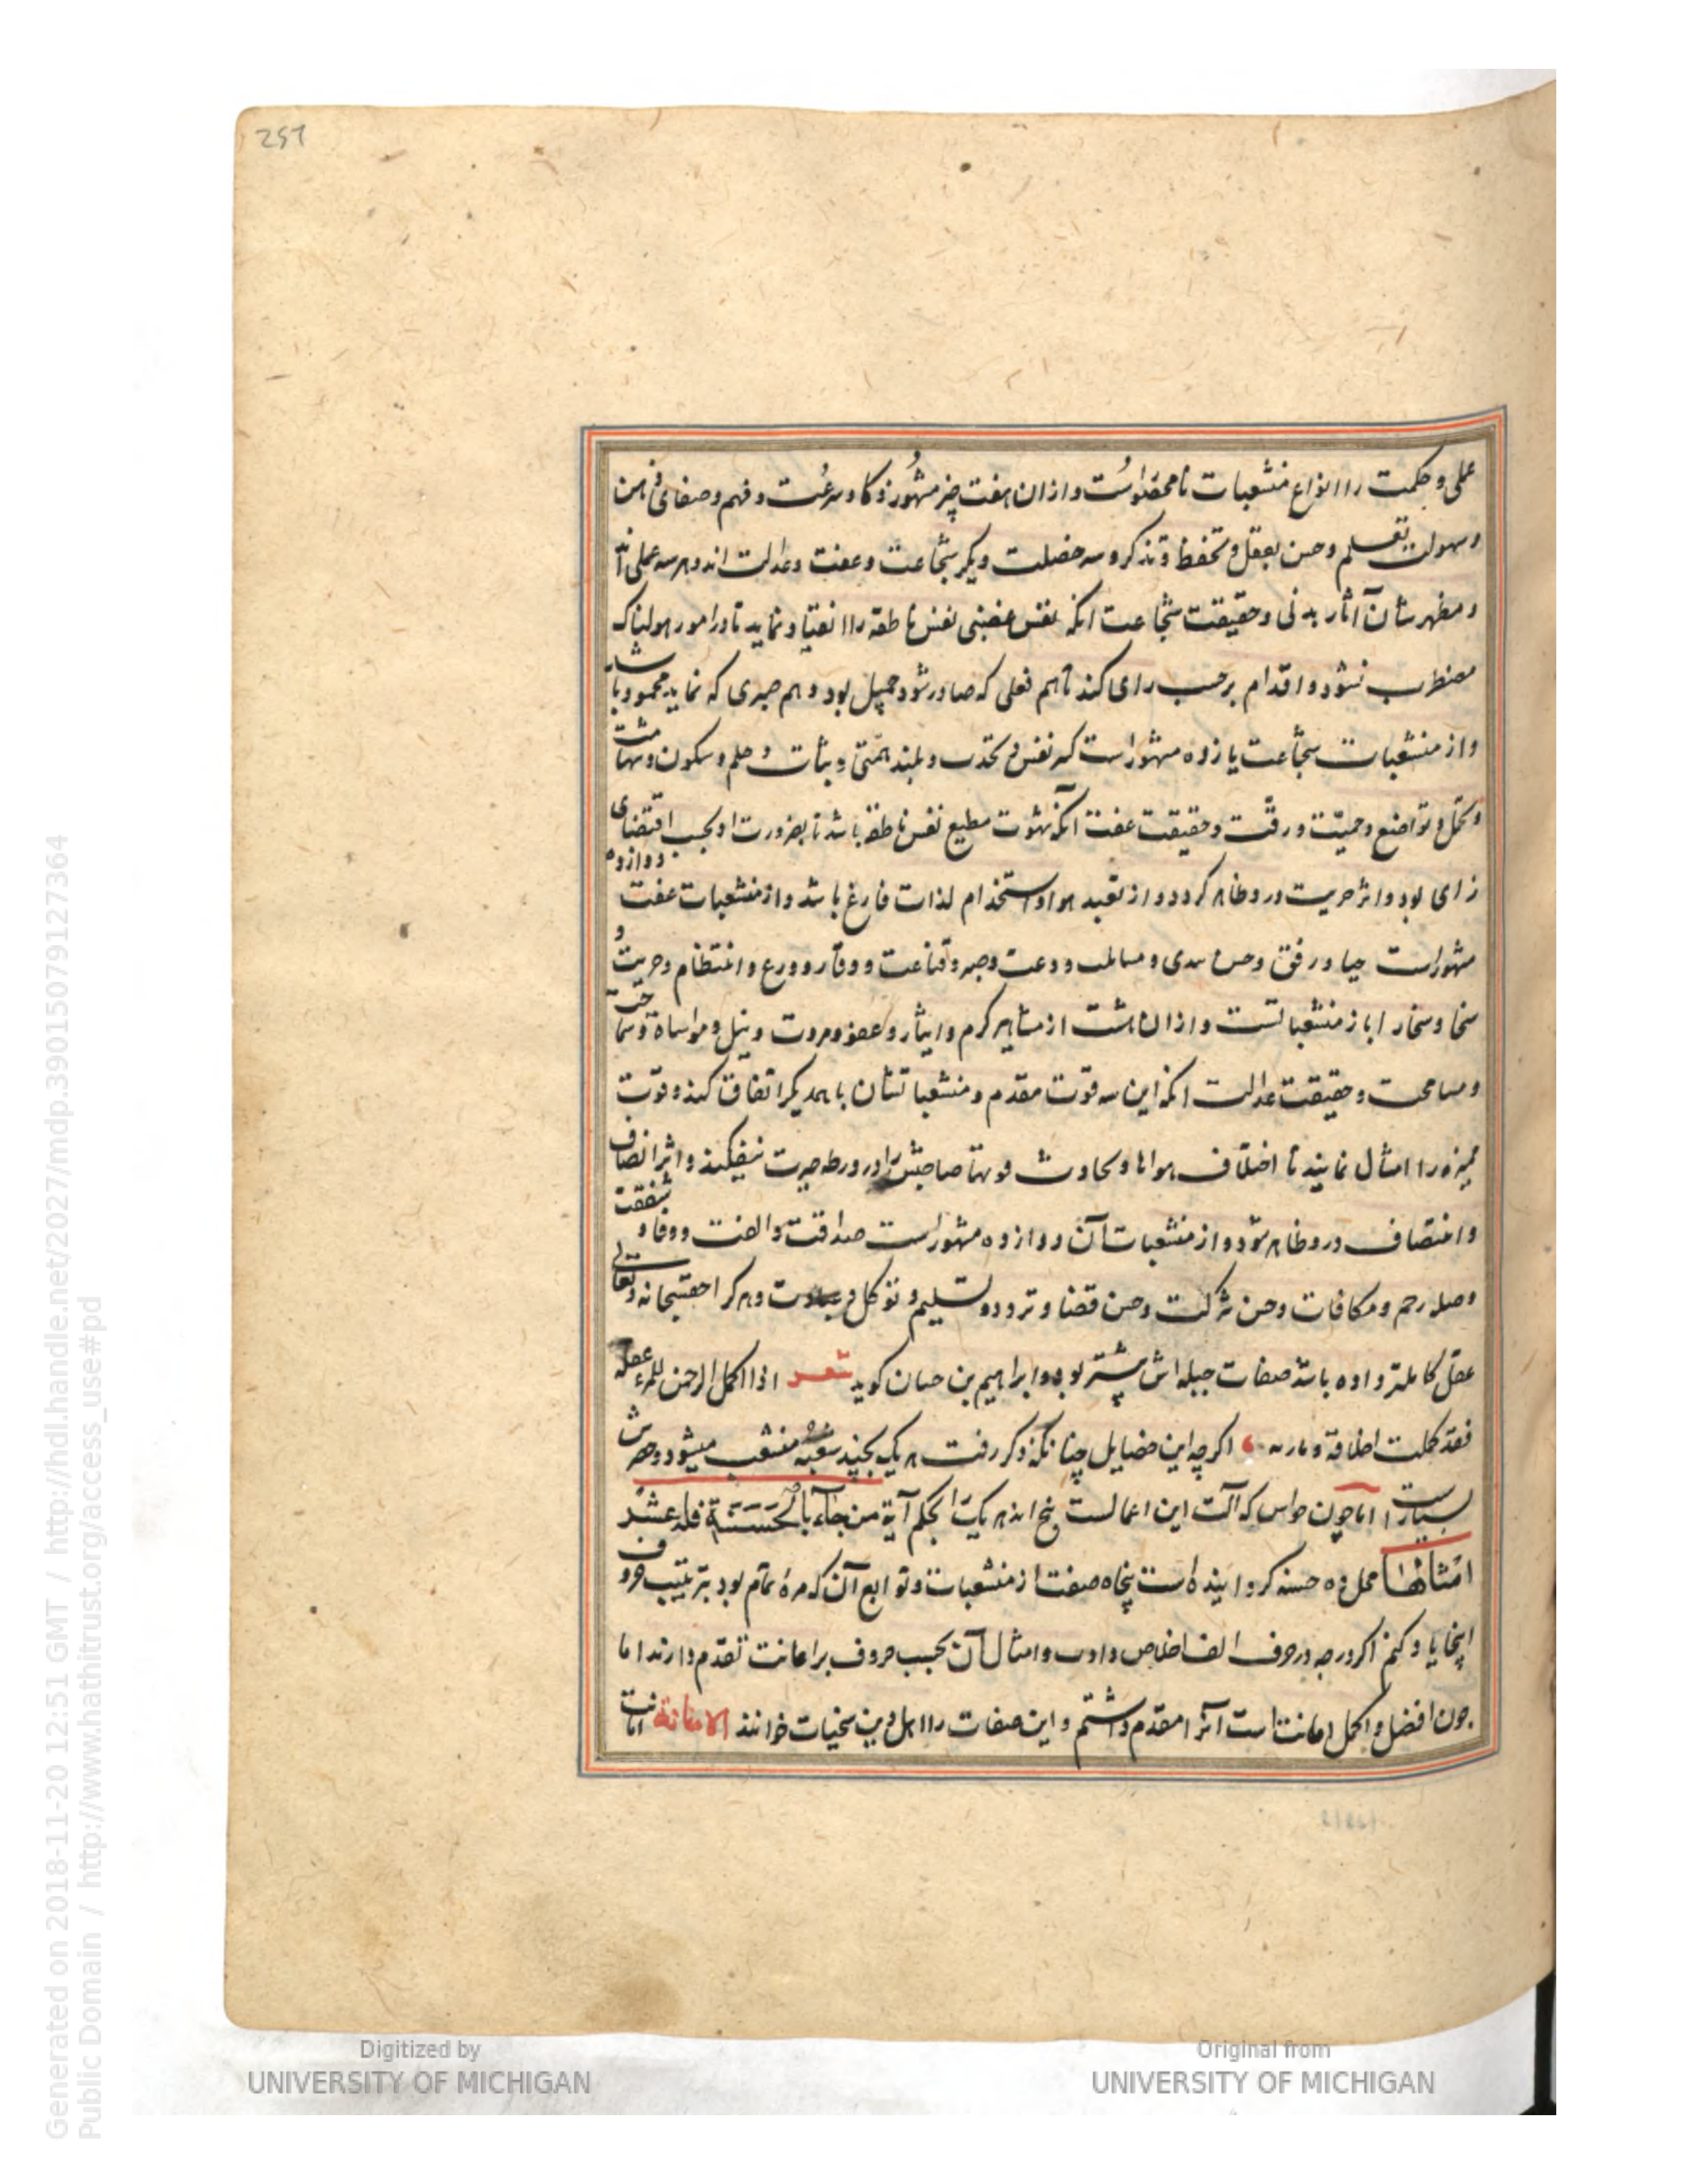 257
علمی و حکمت را انواع منشعبات نامحصور است و ازان هفت چیز مشهور ذکا و سرعت و فهم و صفای ذهن
و سهولت تعلم و حسن تعقل و تحفظ و تذکر و سه خصلت دیکر شجاعت و عفت و عدالت اند و هر سه عملی اند
و مظهر شان آثار بدنی و حقیقت شجاعت انکه نفس غضبی نفس ناطقه را انقیاد نماید تا در امور هولناک
مضطرب نشود و اقدام بر حسب رای کند تا هم فعلی که صادر شود جمیل بود و هم صبری که نماید محمود باشد
و از منشعبات شجاعت یازده مشهور است کبر نفس و نجدت و بلند همتی و ثبات و حلم و سکون و شهامت
و تحمل و تواضع و حمیت و رقت و حقیقت عفت آنکه شهوت مطیع نفس ناطقه باشد تا بضرورت او بحسب اقتضای
رای بود و اثر حریت در و ظاهر کردد و از تعبد هوا و استخدام لذات فارغ باشد و از منشعبات عفت دوازده
مشهور است حیا و رفق و حسن هدی و مسالمت و دعت و صبر و قناعت و وقار و ورع و انتظام و حریت و
سخا و سخا را باز منشعباتست و ازان هشت از مشاهیر کرم و ایثار و عفو و مروت و نیل و مواساة و سماحت
و مسامحت و حقیقت عدالت انکه این سه قوت مقدم و منشعبات شان با همدیکر اتفاق کنند و قوت
ممیزه را امتثال نمایند تا اختلاف هواها و تجاذب قوتها صاحبش را در ورطه حیرت نیفکند و اثر انصاف
و انتصاف در و ظاهر شود و از منشعبات آن دوازده مشهور است صداقت و الفت و وفا و شفقت
و صله رحم و مکافات و حسن شرکت و حسن قضا و تودد و تسلیم و توکل و عبادت و هر کرا حق سبحانه و تعالی
عقل کاملتر داده باشد صفات جبله اش بیشتر بود و ابراهیم بن حسان کوید شعر اذا اکمل الرحمن للمرء عقله
فقد کملت اخلاقه و مآربه اکرچه این خصایل چنانکه ذکر رفت هر یک بچند شعبه منشعب میشود و حصرش
بسیار است اما چون حواس که آلت این اعمالست پنج اند هر یک را بحکم آیة من جآء بالحسنة فله عشر
امثالها محل ده حسنه کردانیده است پنجاه صفت از منشعبات و توابع آن که مره تمام بود بترتیب حروف
اینجا یاد کنیم اکرچه در حرف الف اخلاص و ادب و امثال آن بحسب حروف بر امانت تقدم دارند اما
چون افضل و اکمل امانت است آنرا مقدم داشتیم و این صفات را اهل دین سخیات خوانند الامانة امانت
Digitized by
UNIVERSITY OF MICHIGAN
Original from
UNIVERSITY OF MICHIGAN
Generated on 2018-11-20 12:51 GMT / http://hdl.handle.net/2027/mdp.39015079127364
Public Domain / http://www.hathitrust.org/access_use#pd